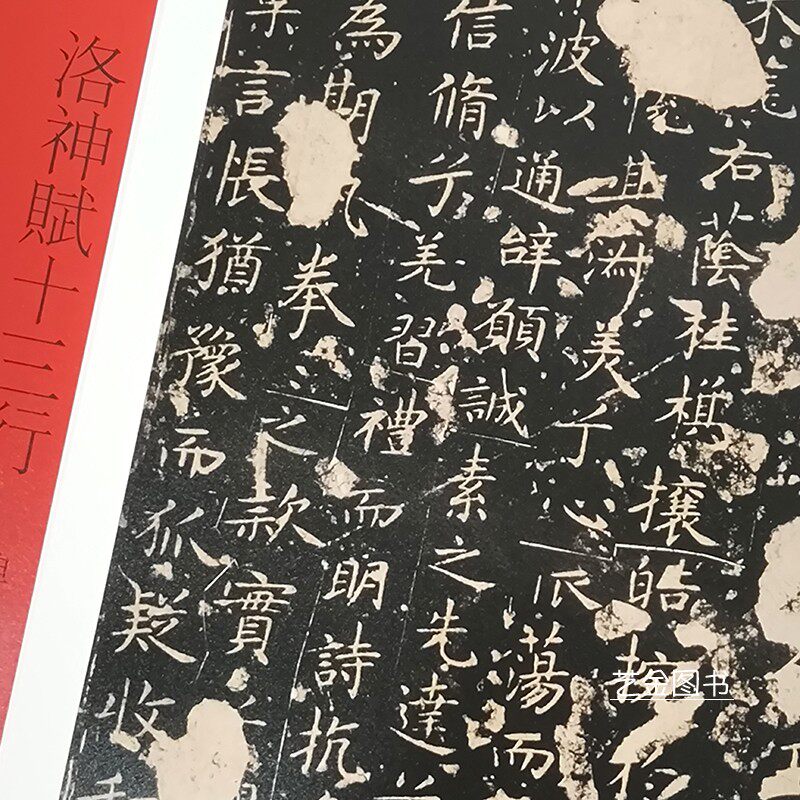 洛神賦十三行
右蔭桂棋攘皓
其淑美兮心蕩而
波以通辭願誠素之先達
信脩兮羌習禮而明詩抗
為期拳〻之款實
言悵猶豫而狐疑收
艺金图书